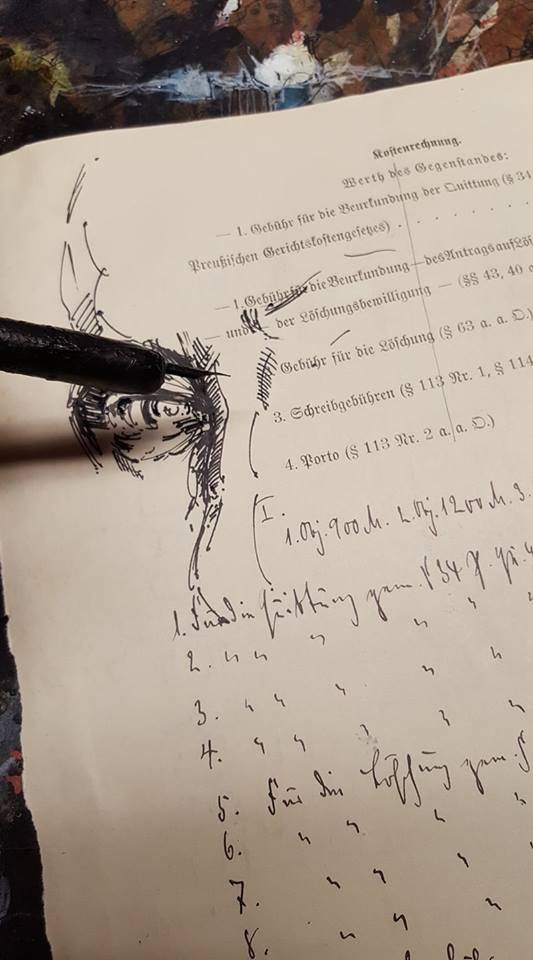 Kostenrechnung.
Werth des Gegenstandes:
— 1. Gebühr für die Beurkundung der Quittung (§ 34
Preußischen Gerichtskostengesetzes) . . . . . . .
— 1. Gebühr für die Beurkundung — des Antrags auf Lös
— und der Löschungsbewilligung — (§§ 43, 40
Gebühr für die Löschung (§ 63 a. a. O.)
3. Schreibgebühren (§ 113 Nr. 1, § 114
4. Porto (§ 113 Nr. 2 a. a. O.)
I.
1. Obj. 900 M. 2. Obj. 1200 M. 3.
1. Für die Quittung gem. § 34
2. " " " " "
3. " " " " "
4. " " " " "
5. Für die Löschung gem. §
6. " " " "
7. " " " "
8. " " "